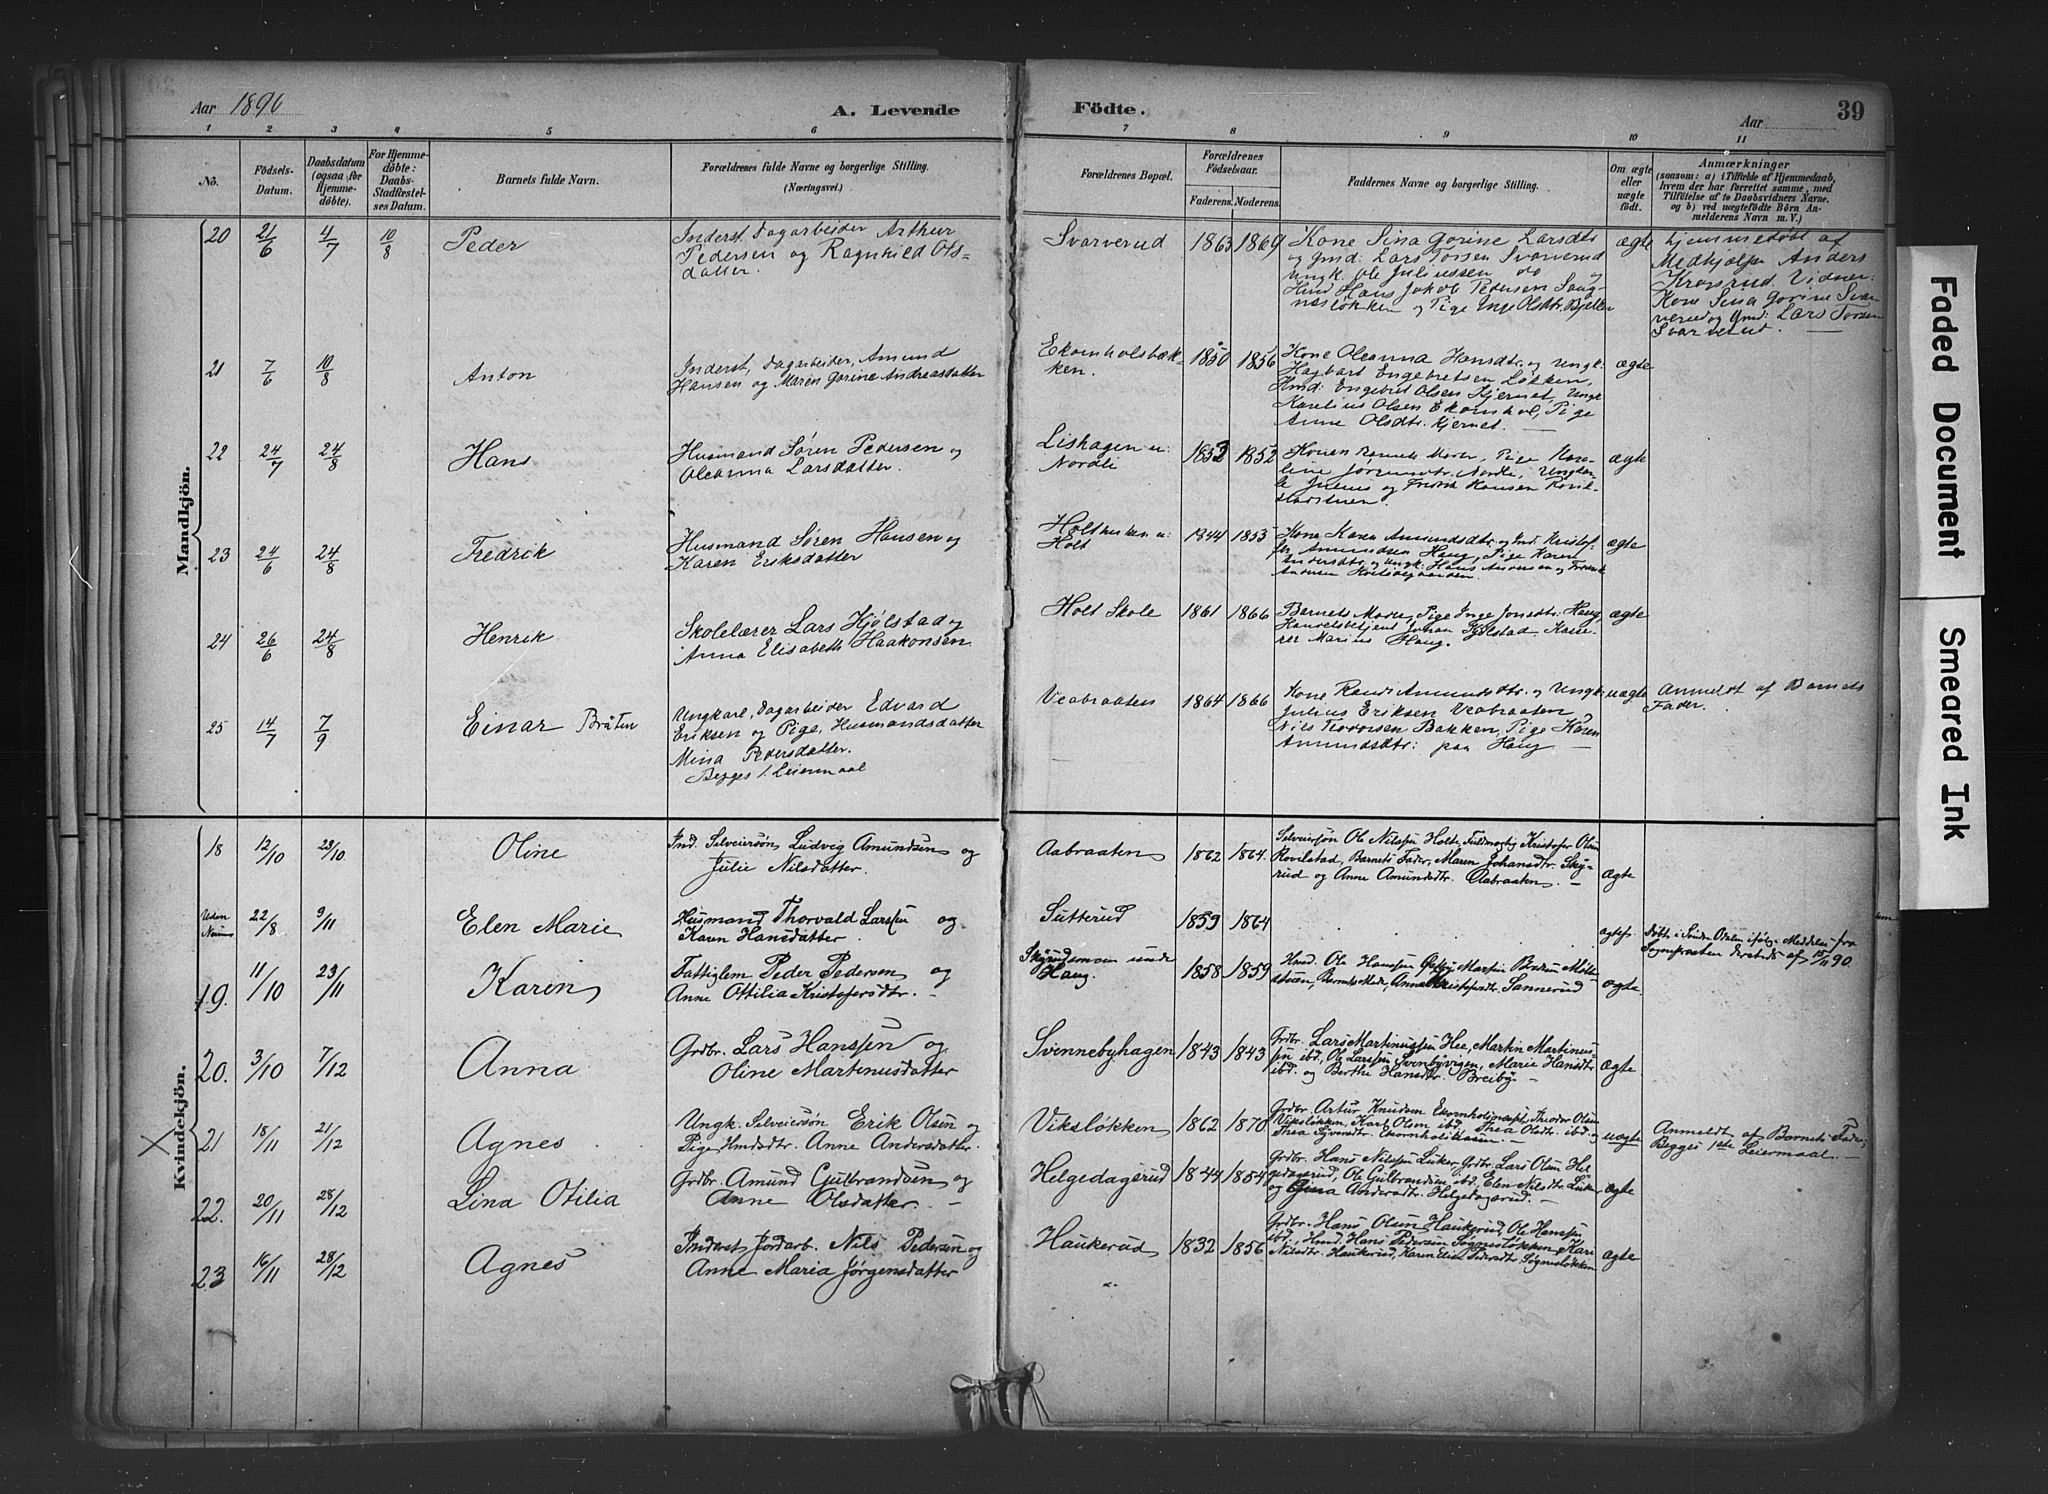 Aar 1890
A. Levende
Födte.
Aar
39
1 2 3 4 5 6 7 8 9 10 11
No.
Födsels-Datum.
Daabsdatum (ogsaa for Hjemmedöbte).
For Hjemmedöbte: Daabs-Stadfæstelses Datum.
Barnets fulde Navn.
Forældrenes fulde Navne og borgerlige Stilling. (Næringsvei.)
Forældrenes Bopæl.
Forældrenes Födselsaar.
Faderens. Moderens.
Faddernes Navne og borgerlige Stilling.
Om ægte eller uægte födt.
Anmærkninger
(saasom: a) i Tilfælde af Hjemmedaab, hvem der har forrettet samme, med Tilföielse af to Daabsvidners Navne, og b) ved uægtefödte Börn Anmelderens Navn m. V.)
Mandkjön.
20 21/6 4/7 10/8 Peder
Inderst, Dagarbeider Arthur
Pedersen og Ragnhild Ols-
datter.
Svarverud 1863 1869
Kone Sina Gorine Larsdtr
og Gmd: Lars Torsen Svarverud
Ungk. Ole Juliussen do og
Hmd Hans Jakob Pedersen Saug-
nesløkken og Pige Inge Olsdtr. Bjellen
ægte
hjemmedøbt af
Medhjælper Anders
Krogsrud. Vidner:
Kone Sina Gorine Svar
verud og Gmd: Lars Torsen
Svarverud.
21 7/6 10/8 Anton
Inderst, Dagarbeider, Amund
Hansen og Maren Gorine Andreasdatter
Ekornholsbæk-
ken. 1850 1856
Kone Oleanna Hansdtr. og Ungk.
Hagbart Engebretsen Løkken,
Hmd: Engebret Olsen Kjernet, Ungk
Karelius Olsen Ekornhol, Pige
Anne Olsdtr. Kjernet.
ægte
22 24/7 24/8 Hans
Husmand Søren Pedersen og
Oleanna Larsdatter.
Lishagen u:
Nordli 1853 1852
Konen Barnets Moder, Pige Karo-
line Jørgensdtr. Nordli,
Julius og Fredrik Hansen
ægte
23 24/6 24/8 Fredrik
Husmand Søren Hansen og
Karen Eriksdatter
Holt 1844 1853
Kone Karen Amundsdtr. og Gmd. Kristof-
fer Amundsen Haug, Pige Karen
Andersdtr. og Ungk. Hans Andersen og Fredrik
Andersen
ægte
24 26/6 24/8 Henrik
Skolelærer Lars Kjølstad og
Anna Elisabeth Haakonsen.
Holt Skole 1861 1866
Barnets Moder, Pige Inge Jonsdtr. Haug,
Handelsbetjent Johan Kjølstad, Kasse-
rer Marius Haug.
ægte
25 14/7 7/9 Einar Bråten
Ungkarl, Dagarbeider Edvard
Eriksen og Pige, Husmandsdatter
Mina Pedersdatter.
Begges 1. Leiermaal
Veabraaten 1864 1866
Kone Randi Amundsdtr. og Ungk.
Julius Eriksen Veabraaten,
Nils Teodorsen Bakken, Pige Karen
Amundsdtr: paa Haug
uægte
Anmeldt af Barnets
Fader.
Kvindekjön.
18 12/10 23/10 Oline
Ind. Selveiersøn Ludvig Amundsen og
Julie Nilsdatter.
Aabraaten 1862 1864.
Selveiersøn Ole Nilssen Holt, Fuldmægtig Kristofer Olsen
Rovilstad, Barnets Fader, Maren Johansdtr. Sky-
rud og Anne Amundsdtr. Aabraaten.
ægte
Uden Numer 22/8 9/11 Elen Marie
Husmand Thorvald Larssen og
Karen Hansdatter.
Sutterud 1859 1864
ægtef.
Døbt i Søndre Odalen ifølge Meddelse fra
Sognepræsten dersteds af 15/11 90.
19. 11/10 23/11 Karin
Fattiglem Peder Pedersen og
Anne Ottilia Kristofersdtr.
Skyrudsmoen under
Haug. 1858 1859
Hmd. Ole Hanssen Østby, Martin Berntsen Mølle-
stuen, Barnets Moder, Anne Kristofersdtr. Sannerud
ægte.
20. 3/10 7/12 Anna
Grdbr. Lars Hanssen og
Oline Martinusdatter
Svennebyhagen 1843 1843
Grdbr. Lars Martinussen Hee, Martin Martinus-
sen ibd. Ole Larssen Svenbyvigen, Marie Hansdtr.
ibd. og Berthe Hansdtr. Breiby
ægte
21 18/11 21/12 Agnes
Ungk. Selveiersøn Erik Olsen og
Pige Hmdsdtr. Anne Andersdatter.
Viksløkken 1862 1870
Grdbr. Artur Knudsen Ekornholmoset, Theodor Olsen
Viksløkken, Karl Olsen ibd. Thea Olsdtr. ibd. og
Thea Syversdtr. Ekornholkasen.
uægte
Anmeldt af Barnets Fader,
Begges 1ste Leiermaal.
22. 20/11 28/12 Lina Otilia
Grdbr. Amund Gulbrandsen og
Anne Olsdatter.
Helgedagsrud 1844 1854
Grdbr. Hans Nilssen Luker, Grdbr. Lars Olsen Hel-
gedagsrud, Ole Gulbrandsen ibd, Elen Nilsdtr. Luker
og Gina Andersdtr. Helgedagsrud.
ægte
23 16/11 28/12 Agnes
Inderst, Jordarb. Nils Pedersen og
Anne Maria Jørgensdatter
Haukerud 1832 1856
Grdbr. Hans Olsen Haukerud, Ole Hanssen
ibd., Hmd. Hans Pedersen Søgnesløkken, Kari
Nilsdtr. Haukerud, Karen Elise Pedersdtr. Søgnesløkken
ægte
Faded Document
Smeared Ink